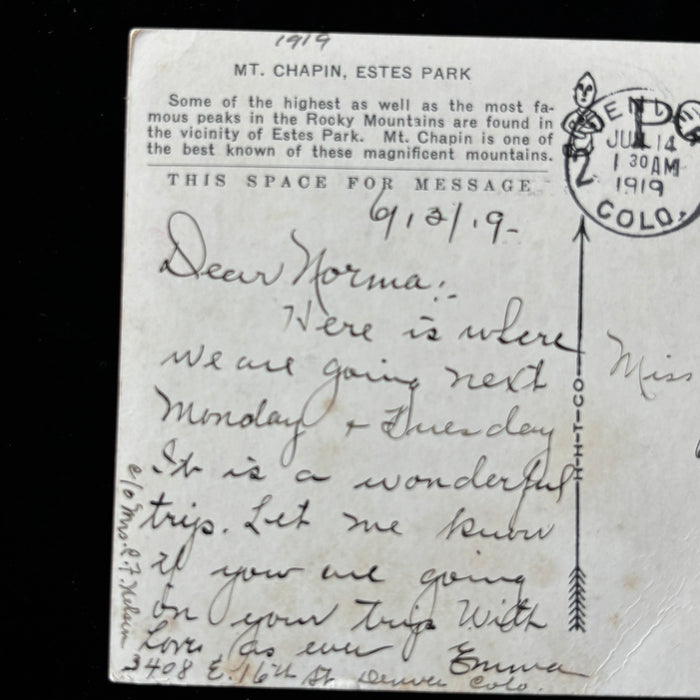 1919
MT. CHAPIN, ESTES PARK
Some of the highest as well as the most fa-
mous peaks in the Rocky Mountains are found in
the vicinity of Estes Park. Mt. Chapin is one of
the best known of these magnificent mountains.
THIS SPACE FOR MESSAGE
6/12/19-
Dear Norma:-
Here is where
we are going next
Monday + Tuesday
It is a wonderful
trip. Let me know
if you are going
on your trip With
Love as ever Emma
3408 E. 16th St Denver Colo.
c/o Mrs.
H-H-T-CO
JUL 14
1 30 AM
1919
COLO.
Miss